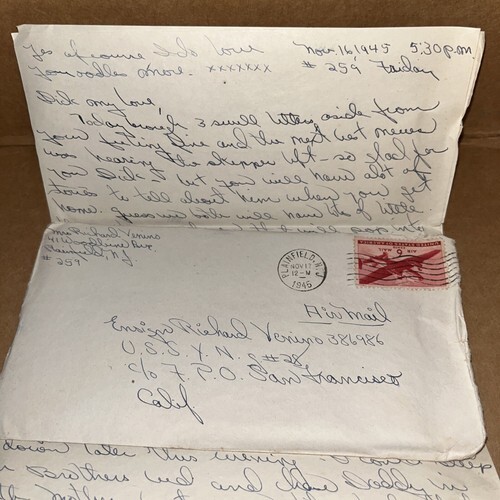 Yes of course I do love
you oodles more. xxxxxxx
Nov. 16, 1945 5:30 p.m.
# 259 Friday
Dick my love,
Today brought 3 swell letters aside from
your first one and the next best news
was hearing the skipper left - so glad for
you Dick but you will have alot of
to tell about him when you get
home. Guess we both will have lots of little
will pop into
Mrs Richard Venino
Plainfield, N.J.
# 259
PLAINFIELD, N.J.
NOV 17
12 - M
1945
UNITED STATES OF AMERICA
6¢
AIR MAIL
Air Mail
Ensign Richard Venino 386986
U.S.S. Y.N. #28
c/o F.P.O. San Francisco
Calif
down later this evening.
Brothers bed and have Daddy in